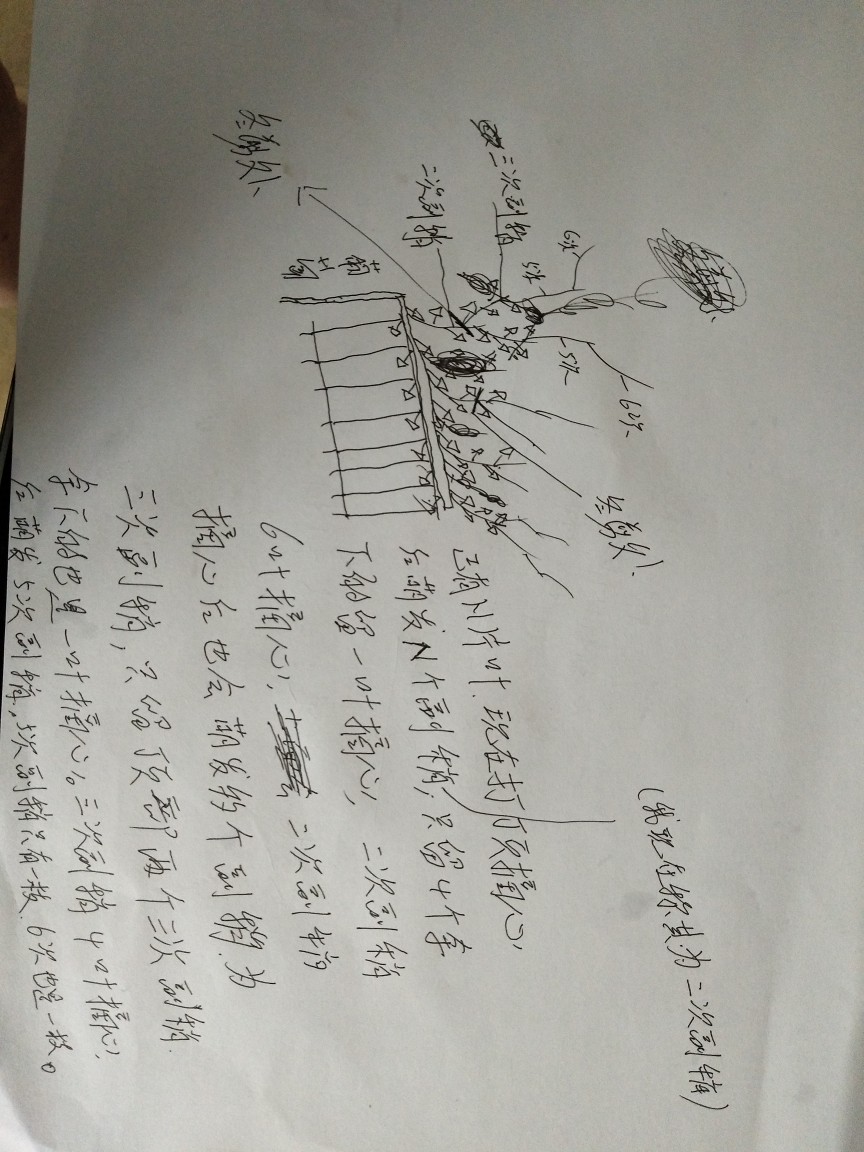 冬剪处
二次副梢
三次副梢
6次
5次
5次
6次
冬剪处
葡
萄
(我现在称其为二次副梢)
已有N片叶,现在打顶摘心,
后萌发N个副梢,只留4个,余
下的留一叶摘心,二次副梢
6叶摘心,二次副梢
摘心后也会萌发多个副梢,为
三次副梢,只留顶部两个三次副梢.
余下的也是一叶摘心。三次副梢4叶摘心,
后萌发5次副梢,5次副梢只有一枝,6次也是一枝。